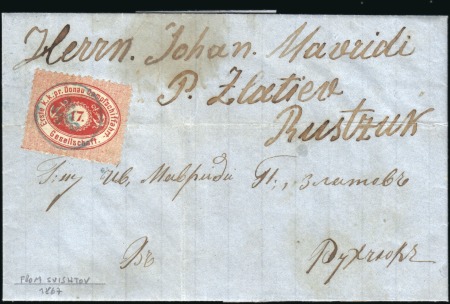 Herrn. Johan. Mavridi
P. Zlatiev
Rustzuk
Erste k.k. pr. Donau Dampfschiffahrt-
17.
Gesellschaft.
Г: ну Ив, Мавриди П:, Златовъ
Въ
FROM SVISHTOV
1867